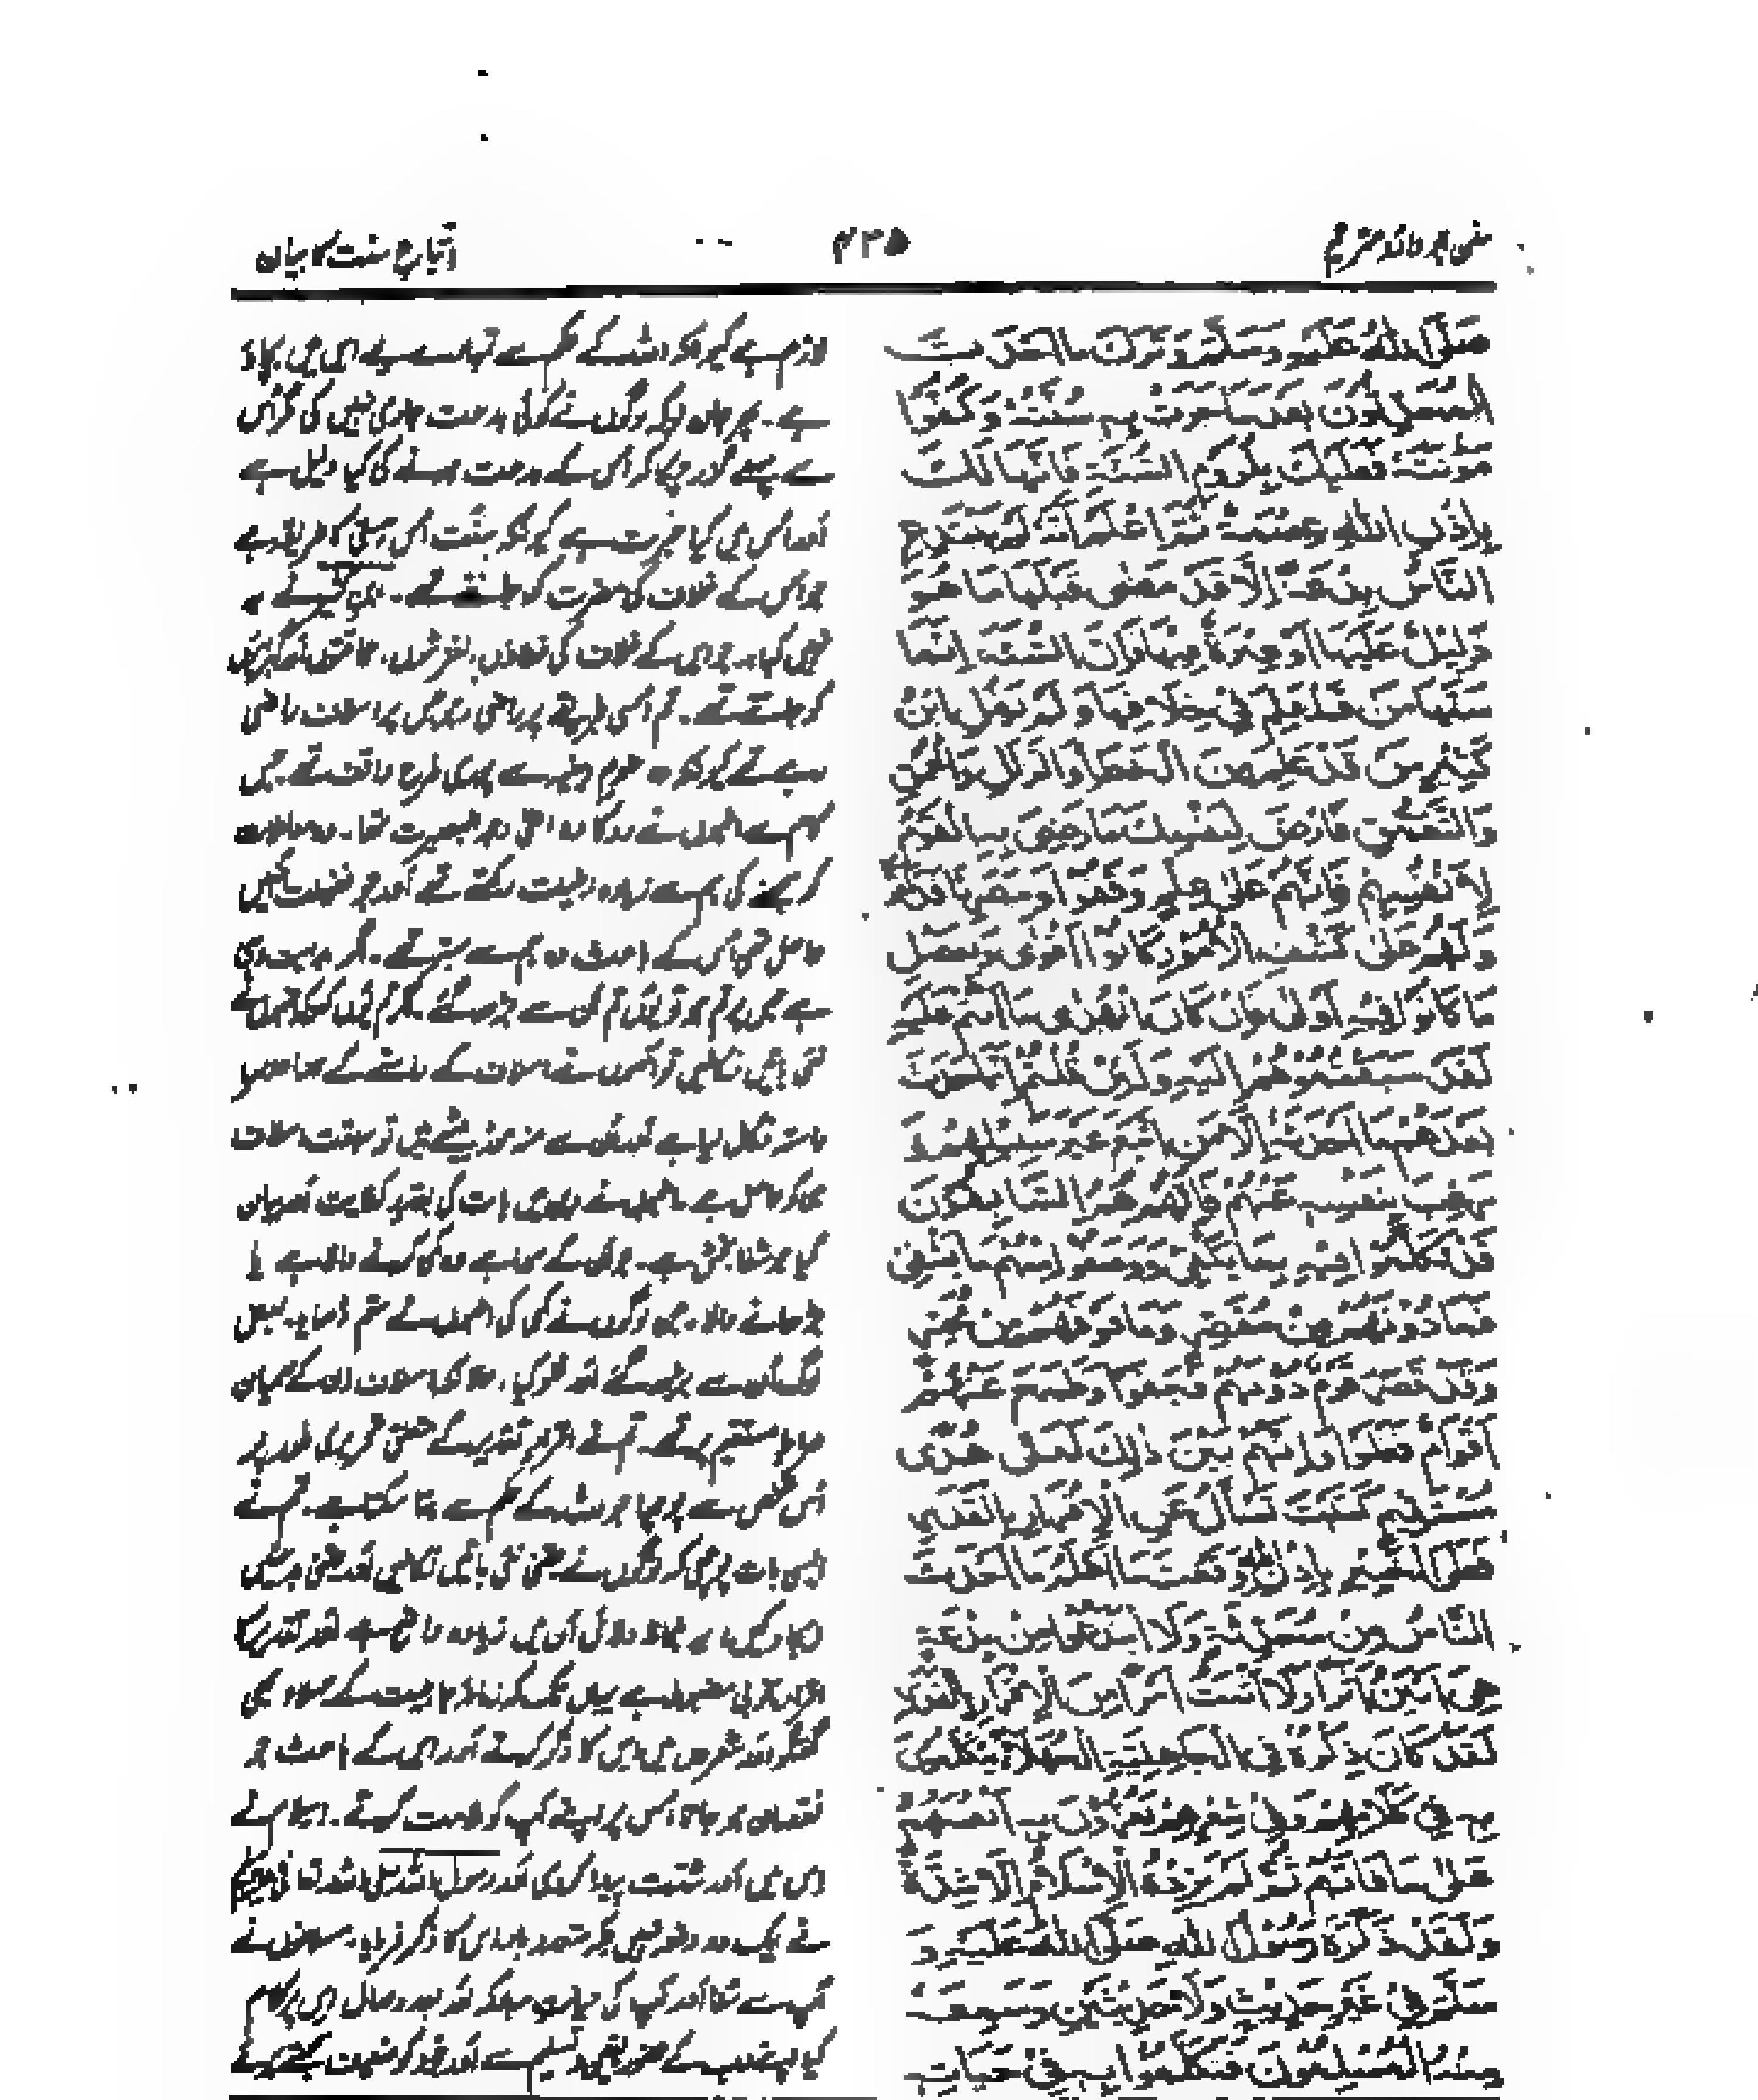 سنن ابوداؤد مترجم
۴۳۵
اتباع سنت کا بیان
صَلَّى اللهُ عَلَيْهِ وَسَلَّمَ وَتَرْكِ مَا أَحْدَثَ
الْمُحْدِثُونَ بَعْدَ مَا جَرَتْ بِهِ سُنَّتُهُ وَكُفُوا
مَؤُنَتَهُ فَعَلَيْكَ بِلُزُومِ السُّنَّةِ فَإِنَّهَا لَكَ
بِإِذْنِ اللهِ عِصْمَةٌ ثُمَّ اعْلَمْ أَنَّهُ لَمْ يَبْتَدِعِ
النَّاسُ بِدْعَةً إِلَّا قَدْ مَضَى قَبْلَهَا مَا هُوَ
دَلِيلٌ عَلَيْهَا أَوْ عِبْرَةٌ فِيهَا فَإِنَّ السُّنَّةَ إِنَّمَا
سَنَّهَا مَنْ قَدْ عَلِمَ فِي خِلَافِهَا وَلَمْ يَقُلِ ابْنُ
كَثِيرٍ مَنْ قَدْ عَلِمَ مِنَ الْخَطَأِ وَالزَّلَلِ وَالْحُمْقِ
وَالتَّعَمُّقِ فَارْضَ لِنَفْسِكَ مَا رَضِيَ بِهِ الْقَوْمُ
لِأَنْفُسِهِمْ فَإِنَّهُمْ عَلَى عِلْمٍ وَقَفُوا وَبِبَصَرٍ نَافِذٍ كَفُّوا
وَلَهُمْ عَلَى كَشْفِ الْأُمُورِ كَانُوا أَقْوَى وَبِفَضْلِ
مَا كَانُوا فِيهِ أَوْلَى فَإِنْ كَانَ الْهُدَى مَا أَنْتُمْ عَلَيْهِ
لَقَدْ سَبَقْتُمُوهُمْ إِلَيْهِ وَلَئِنْ قُلْتُمْ إِنَّمَا حَدَثَ
بَعْدَهُمْ مَا أَحْدَثَهُ إِلَّا مَنِ اتَّبَعَ غَيْرَ سَبِيلِهِمْ وَ
رَغِبَ بِنَفْسِهِ عَنْهُمْ فَإِنَّهُمْ هُمُ السَّابِقُونَ
قَدْ تَكَلَّمُوا فِيهِ بِمَا يَكْفِي وَوَصَفُوا مِنْهُ مَا يَشْفِي
فَمَا دُونَهُمْ مِنْ مَقْصَرٍ وَمَا فَوْقَهُمْ مِنْ مَحْسَرٍ
وَقَدْ قَصَّرَ قَوْمٌ دُونَهُمْ فَجَفَوْا وَطَمَحَ عَنْهُمْ
أَقْوَامٌ فَغَلَوْا وَإِنَّهُمْ بَيْنَ ذَلِكَ لَعَلَى هُدًى
مُسْتَقِيمٍ كَتَبْتَ تَسْأَلُ عَنِ الْإِقْرَارِ بِالْقَدَرِ
فَعَلَى الْخَبِيرِ بِإِذْنِ اللهِ وَقَعْتَ مَا أَعْلَمُ مَا أَحْدَثَ
النَّاسُ مِنْ مُحْدَثَةٍ وَلَا ابْتَدَعُوا مِنْ بِدْعَةٍ
هِيَ أَبْيَنُ أَثَرًا وَلَا أَثْبَتُ أَمْرًا مِنَ الْإِقْرَارِ بِالْقَدَرِ
لَقَدْ كَانَ ذِكْرُهُ فِي الْجَاهِلِيَّةِ الْجُهَلَاءُ يَتَكَلَّمُونَ
بِهِ فِي كَلَامِهِمْ وَفِي شِعْرِهِمْ يُعَزُّونَ بِهِ أَنْفُسَهُمْ
عَلَى مَا فَاتَهُمْ ثُمَّ لَمْ يَزِدْهُ الْإِسْلَامُ إِلَّا شِدَّةً
وَلَقَدْ ذَكَرَهُ رَسُولُ اللهِ صَلَّى اللهُ عَلَيْهِ وَ
سَلَّمَ فِي غَيْرِ حَدِيثٍ وَلَا حَدِيثَيْنِ وَسَمِعَهُ
مِنْهُ الْمُسْلِمُونَ فَتَكَلَّمُوا بِهِ فِي حَيَاتِهِ
لازم ہے کیونکہ اللہ کے حکم سے تمہارے لیے اسی میں بچاؤ
ہے۔ پھر جان لو کہ لوگوں نے کوئی بدعت جاری نہیں کی مگر اس
سے پہلے گزر چکا کہ اس کے بدعت ہونے کی کیا دلیل ہے
اور اس میں کیا عبرت ہے کیونکہ سنت اس ہستی کا طریقہ ہے
جو اس کے خلاف کی مضرت کو جانتے تھے۔ ابن کثیر نے یہ
نہیں کہا۔ جو اس کے خلاف کی خطاؤں، لغزشوں، حماقتوں اور گہرائیوں
کو جانتے تھے۔ تم اسی طریقے پر راضی رہو جس پر اسلاف راضی
رہے تھے کیونکہ وہ علوم دینیہ سے پوری طرح واقف تھے۔ جس
کام سے انہوں نے روکا وہ از روئے بصیرت تھا۔ وہ معاملات
کو سمجھنے کی ہم سے زیادہ اہلیت رکھتے تھے اور جو فضیلت انہیں
حاصل تھی اس کے باعث وہ ہم سے بہتر تھے۔ اگر ہدایت وہی
ہے جس پر تم ہو تو یوں تم ان سے بڑھ گئے۔ اگر تم یوں کہو کہ جنہوں نے
نئی باتیں نکالیں تو انہوں نے اسلاف کے راستے کے سوا دوسرا
راستہ نکال لیا ہے اور ان سے منہ موڑ بیٹھے ہیں تو سبقت اسلاف
ہی کو حاصل ہے۔ انہوں نے دین میں بات کی بقدر کفایت اور بیان
کیا جو شفا بخش ہے۔ جو ان کے سوا ہے وہ کمی کرنے والا ہے یا
بڑھانے والا۔ جن لوگوں نے کمی کی انہوں نے ستم ڈھایا۔ بعض
لوگ ان سے بڑھ گئے اور غلو کیا، حالانکہ اسلاف ان کے درمیان
صراط مستقیم پر تھے۔ تم نے اقرار تقدیر کے متعلق تحریری طور پر
اس شخص سے پوچھا جو اللہ کے حکم سے بتا سکتا ہے۔ تم نے
ایسی بات پوچھی کہ لوگوں نے جتنی نئی باتیں نکالیں اور جتنی بدعتیں
ایجاد کیں یہ بلحاظ دلائل ان میں زیادہ واضح ہے اور تقدیر کا
اقرار تو بڑی مضبوط ہے یہاں تک کہ زمانۂ جاہلیت کے جہلاء بھی
گفتگو اور شعروں میں اس کا ذکر کرتے اور اس کے باعث جو
نقصان ہو جاتا اس پر اپنے آپ کو ملامت کرتے۔ اسلام نے
اس میں اور شدت پیدا کر دی اور رسول اللہ صلی اللہ تعالیٰ علیہ وسلم
نے ایک دو دفعہ نہیں بلکہ متعدد بار اس کا ذکر فرمایا۔ مسلمانوں نے
آپ سے سنا اور آپ کی حیات مبارکہ اور بعد وصال اس پر کلام
کیا اپنے رب کے حضور یقین و تسلیم سے اور خود کو ضعیف سمجھتے ہوئے